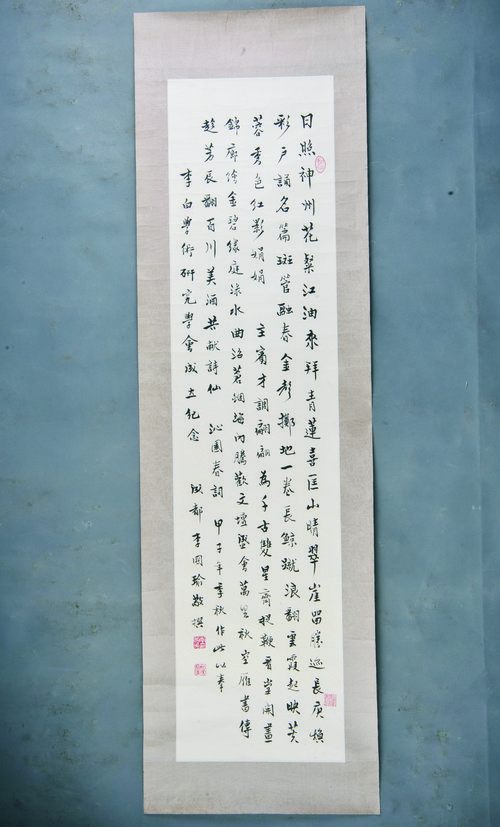 日照神州花粲江油來祥青蓮喜匡山晴翠崖留勝迹長庚煥
彩戶誦名篇斑管融春金擲地一卷長鯨蹴浪翻雲霞起映芙
蓉秀色紅影娟娟 主賓才調翩翩為千古雙星齊鞭看堂開畫
錦廊繪金碧緣庭淥水曲沼茗烟海內騰歡文壇盛會萬里秋空雁書傳
趁芳辰翻百川美酒共獻詩仙 沁園春詞 甲子年季秋作此以奉
李白學術研究學會成立紀念 成都 李國瑜敬撰